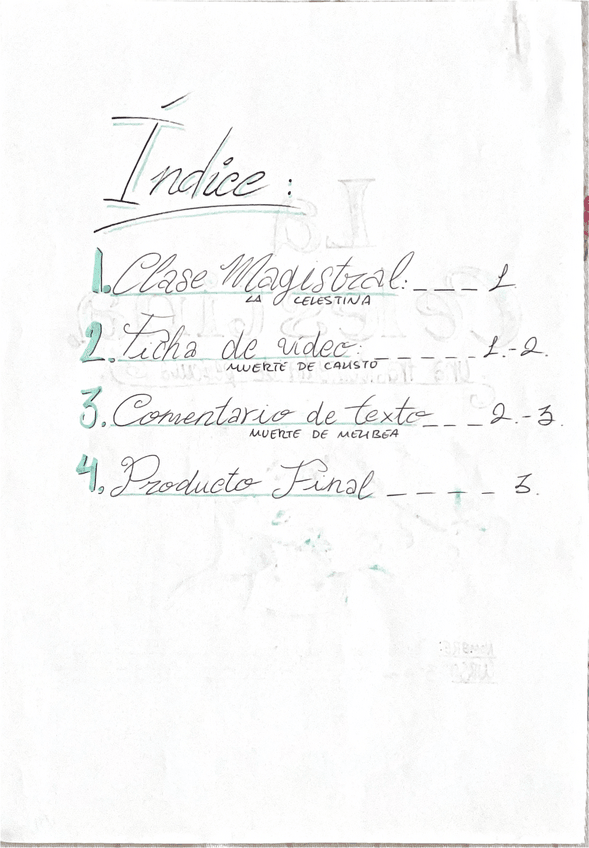 Índice:
1. Clase Magistral: _ _ _ 1
LA CELESTINA
2. Ficha de video: _ _ _ _ _ 1.-2.
MUERTE DE CALISTO
3. Comentario de texto _ _ _ 2.-3.
MUERTE DE MELIBEA
4. Producto Final _ _ _ _ _ 3.